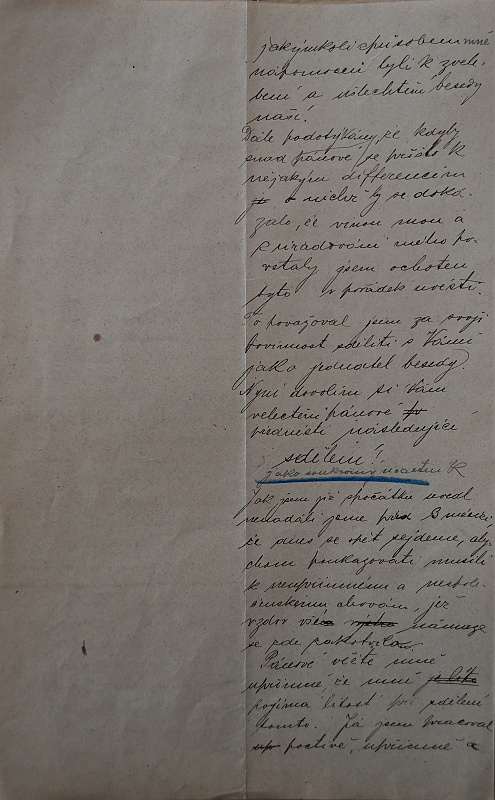 jakýmkoli způsobem mně
nápomocni byli k zvele-
bení a ušlechtění besedy
naší!
Dále podotýkám, že kdyby
snad pánové se přišlo k
nějakým differencím
o nichž by se doká-
zalo, že vinou mou a
mého po-
vstaly jsem ochoten
byto v pořádek uvésti.
To považoval jsem za svoji
povinnost sděliti s Vámi
jako jednatel besedy.
Nyní dovolím si Vám
velectění pánové
následující
sdělení!
jako soukromý
Jak jsem již spočátku uvedl
nenadáli jsme před 3 měsíci
že dnes se opět sejdeme, aby-
chom poukazovati musili
k neupřímnému a nespole-
čenskému chování, jež
vzdor vší námaze
se zde zakotvilo.
Pánové věřte mně
upřímně, že mně je líto
pojímá lítost při sdělení
tomto. Já jsem pracoval
poctivě, upřímně a